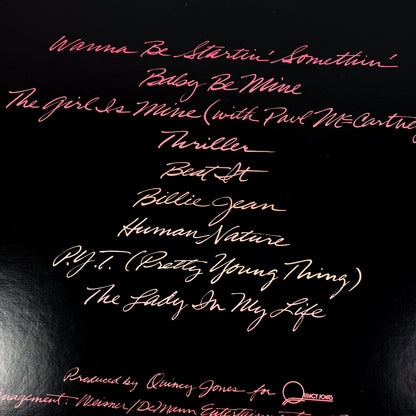 Wanna Be Startin' Somethin'
Baby Be Mine
The Girl Is Mine (with Paul McCartney
Thriller
Beat It
Billie Jean
Human Nature
P.Y.T. (Pretty Young Thing)
The Lady In My Life
Produced by Quincy Jones for QUINCY JONES
nagement: Weisner/DeMann Entertainment